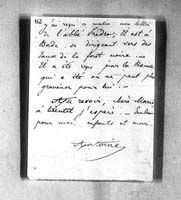 162
j'ai reçu ce matin une lettre
de l'abbé Fredro; il est à
Bade se dirigeant vers des
eaux de la forêt noire. –
Il a été reçu par la Reine
qui a été on ne peut plus
gracieuse pour lui.
Au revoir, chère Marie
à bientôt j'espère.
pour vous, enfants et mari.
Antoine